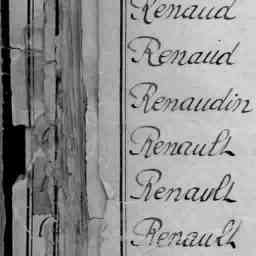 Renaud
Renaud
Renaudin
Renault
Renault
Renault